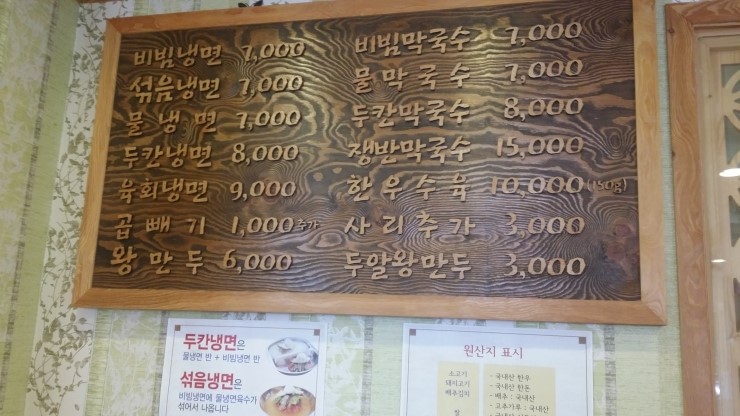 비빔냉면 7,000
섞음냉면 7,000
물냉면 7,000
두칸냉면 8,000
육회냉면 9,000
곱빼기 1,000 추가
왕만두 6,000
비빔막국수 7,000
물막국수 7,000
두칸막국수 8,000
쟁반막국수 15,000
한우수육 10,000 (150g)
사리추가 3,000
두알왕만두 3,000
두칸냉면은
물냉면 반 + 비빔냉면 반
섞음냉면은
비빔냉면에 물냉면육수가
섞어서 나옵니다
원산지 표시
소고기 - 국내산 한우
돼지고기 - 국내산 한돈
배추김치 - 배추 : 국내산
- 고추가루 : 국내산
쌀